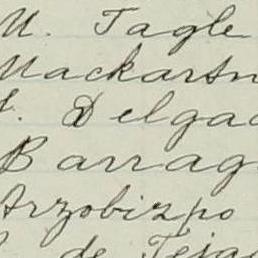 M. Tagle
Mackartn
J. Delgad
Barrag
Arzobizpo
de Tejad